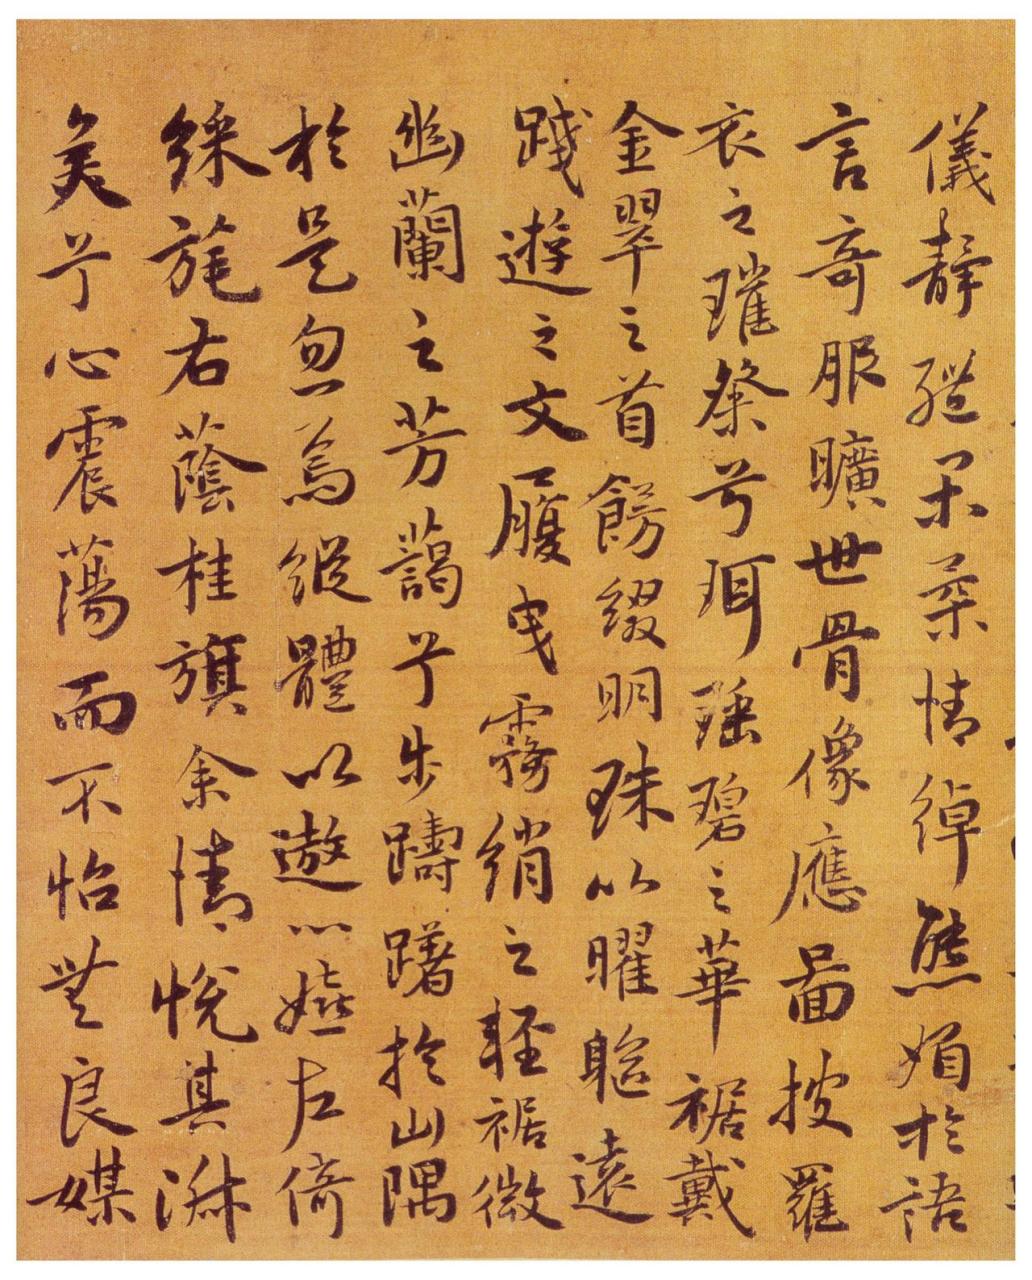 儀靜體閑柔情綽態媚於語
言奇服曠世骨像應圖披羅
衣之璀粲兮珥瑤碧之華裾戴
金翠之首餝綴明珠以曜軀
踐遊之文履曳霧綃之輕裾微
幽蘭之芳藹兮步躊躇於山隅
於是忽焉縱體以遨以嬉左倚
綵旄右蔭桂旗余情悅其淋
美兮心震蕩而不怡無良媒